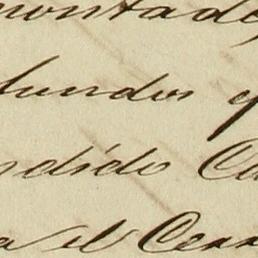 montado,
fundos y
ndido Ca
a el Cerr